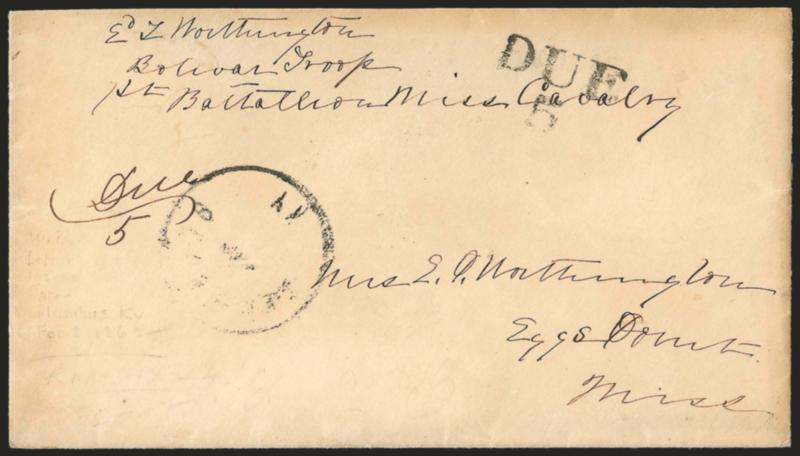 Ed T Worthington
Bolivar Troop
1st Battallion Miss Cavalry
DUE
5
Due
5
KY
Mrs E. P. Worthington
Eggs Point
Miss
Columbus Ky